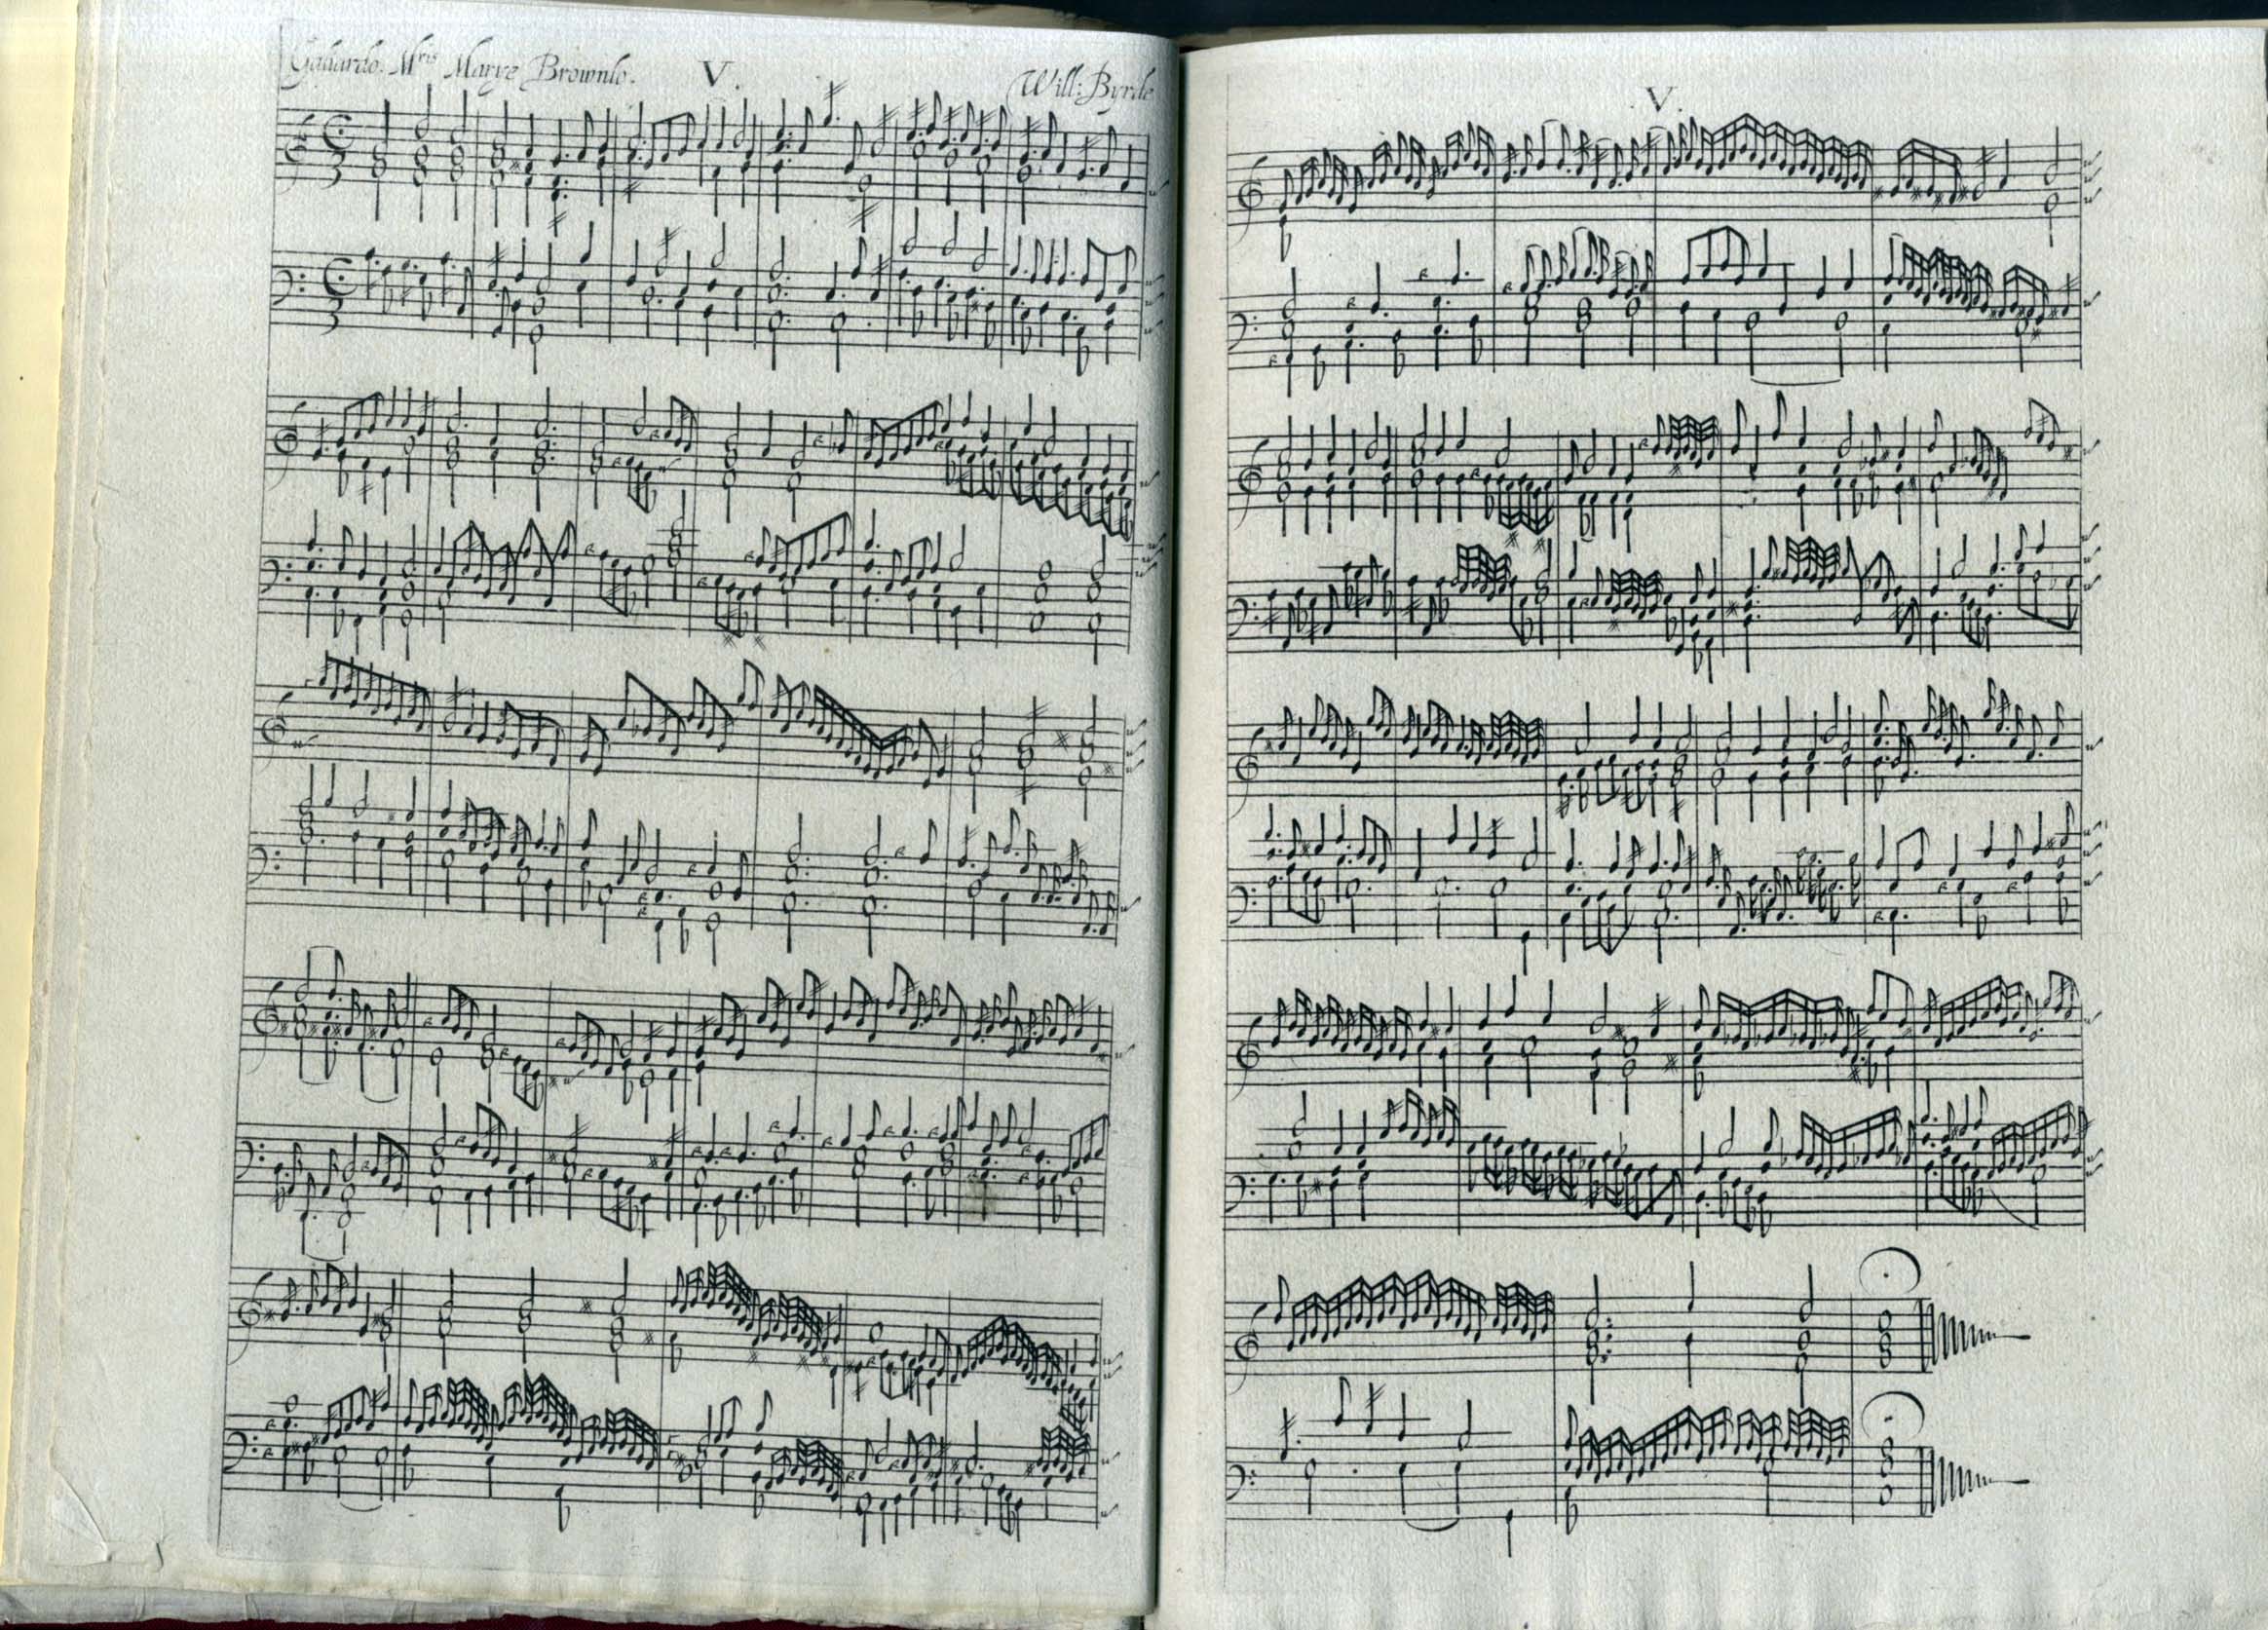 Galiardo. Mris Marye Brownlo. V. Will: Byrde
V.